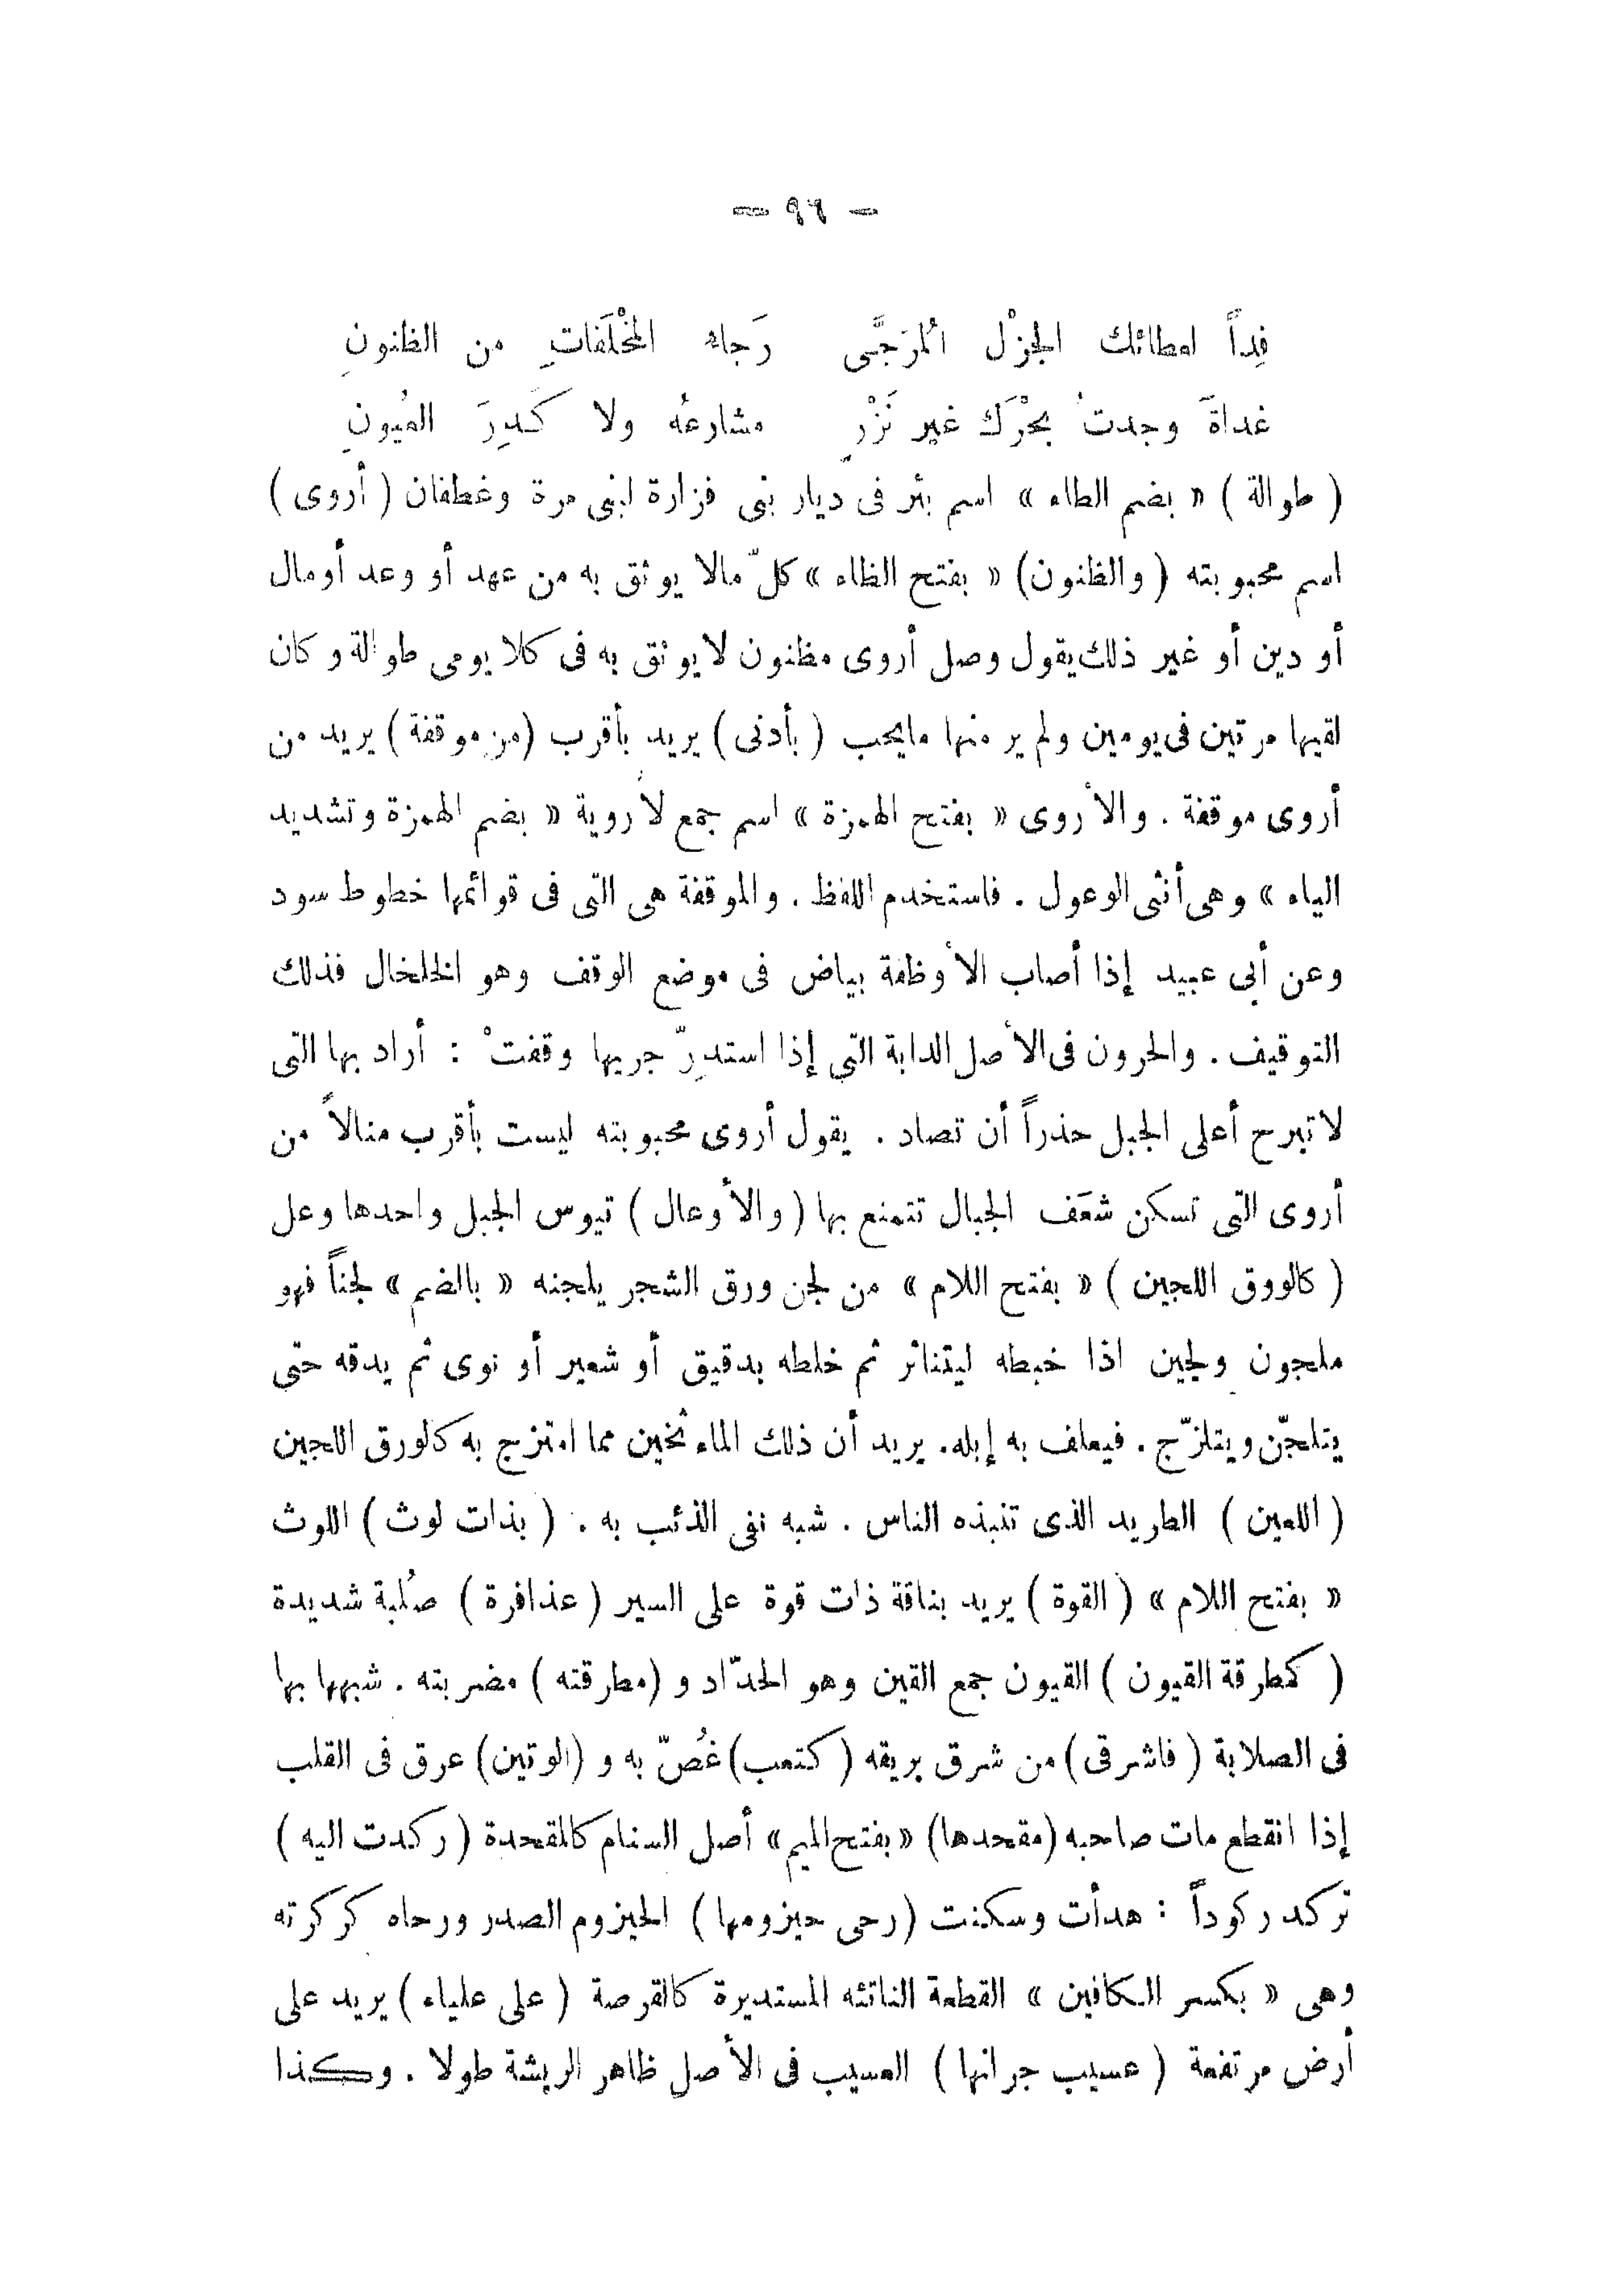 — ٩٦ —
فِداً لعطائك الجزْل المُرَجَّى رَجاء المخْلَفاتِ من الظنونِ
غداةَ وجدتُ بحْرَك غير نَزْرٍ مشارعُه ولا كَدِرَ العُيونِ
( طوالة ) « بضم الطاء » اسم بئر فى ديار بنى فزارة لبنى مرة وغطفان ( أروى )
اسم محبوبته ( والظنون) « بفتح الظاء » كلّ مالا يوثق به من عهد أو وعد أومال
أو دين أو غير ذلك يقول وصل أروى مظنون لا يوثق به فى كلا يومى طوالة وكان
لقيها مرتين فى يومين ولم ير منها مايحب ( بأدنى ) يريد بأقرب (من موقفة ) يريد من
أروى موقفة . والأروى « بفتح الهمزة » اسم جمع لأروية « بضم الهمزة وتشديد
الياء » وهى أنثى الوعول . فاستخدم اللفظ . والموقفة هى التى فى قوائمها خطوط سود
وعن أبى عبيد إذا أصاب الأوظفة بياض فى موضع الوقف وهو الخلخال فذلك
التوقيف . والحرون فى الأصل الدابة التى إذا استدرّ جريها وقفتْ : أراد بها التى
لا تبرح أعلى الجبل حذراً أن تصاد . يقول أروى محبوبته ليست بأقرب منالاً من
أروى التى تسكن شعَف الجبال تتمنع بها ( والأوعال ) تيوس الجبل واحدها وعل
( كالووق اللجين ) « بفتح اللام » من لجن ورق الشجر يلجنه « بالضم » لجناً فهو
ملجون ولجين اذا خبطه ليتناثر ثم خلطه بدقيق أو شعير أو نوى ثم يدقه حتى
يتلجّن ويتلزّج . فيعلف به إبله. يريد أن ذلك الماء ثخين مما امتزج به كالورق اللجين
( اللعين ) الطريد الذى تنبذه الناس . شبه نفى الذئب به . ( بذات لوث ) اللوث
« بفتح اللام » ( القوة ) يريد بناقة ذات قوة على السير ( عذافرة ) صُلبة شديدة
( كمطرقة القيون ) القيون جمع القين وهو الحدّاد و (مطرقته ) مضربته . شبهها بها
فى الصلابة ( فاشرقى ) من شرق بريقه ( كتعب) غُصّ به و (الوتين) عرق فى القلب
إذا انقطع مات صاحبه (مقحدها) « بفتح الميم » أصل السنام كالمقحدة ( ركدت اليه )
تركد ركوداً : هدأت وسكنت (رحى حيزومها ) الحيزوم الصدر ورحاه كركرته
وهى « بكسر الكافين » القطعة الناتئه المستديرة كالقرصة ( على علياء ) يريد على
أرض مرتفعة ( عسيب جرانها ) العسيب فى الأصل ظاهر الريشة طولا . وكذا